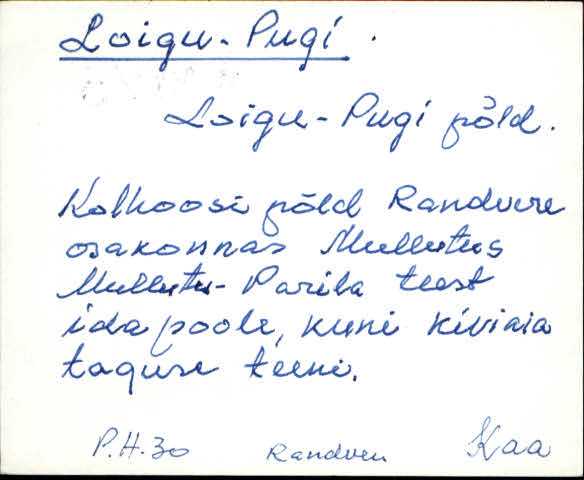 Loigu-Pugi.
Loigu-Pugi põld.
Kolhoosi põld Randvere
osakonnas Mullutus
Mullutu-Parila teest
ida poole, kuni kiviaia
taguse teeni.
P.H.30 Randvere Kaa